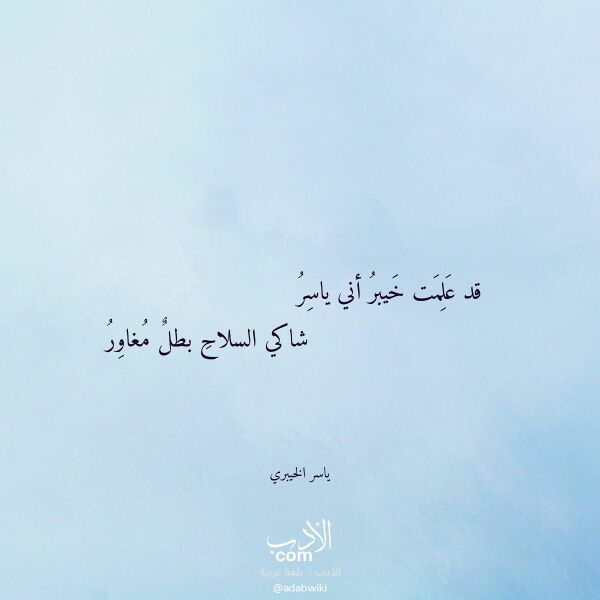 قد عَلِمَت خَيبرُ أني ياسِرُ
شاكي السلاحِ بطلٌ مُغاوِرُ
ياسر الخيبري
الأدب
com
الأدب .. بلغة عربية
@adabwiki